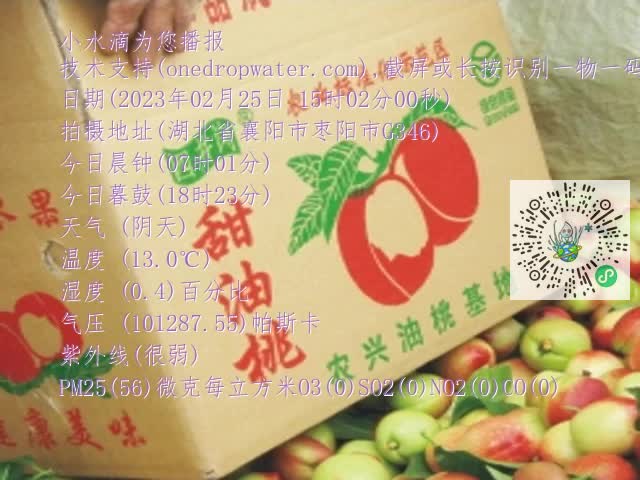 小水滴为您播报
技术支持(onedropwater.com),截屏或长按识别一物一码
日期(2023年02月25日 15时02分00秒)
拍摄地址(湖北省襄阳市枣阳市G346)
今日晨钟(07时01分)
今日暮鼓(18时23分)
天气 (阴天)
温度 (13.0℃)
湿度 (0.4)百分比
气压 (101287.55)帕斯卡
紫外线(很弱)
PM25(56)微克每立方米O3(0)SO2(0)NO2(0)CO(0)
甜油桃
农兴油桃基地
水果
健康美味